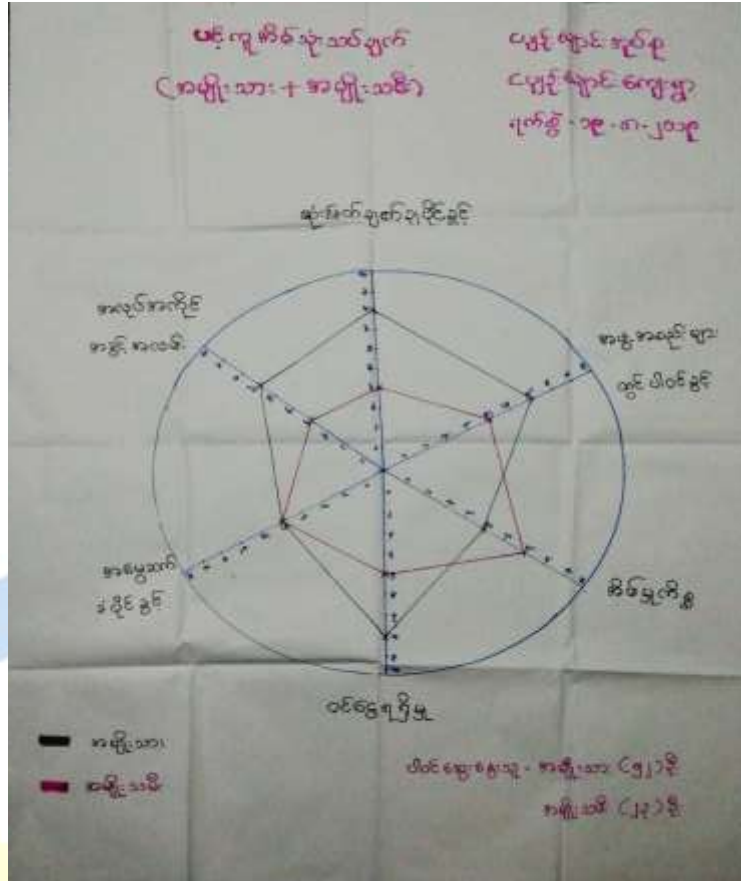 ပင့်ကူအိမ်သုံးသပ်ချက်
(အမျိုးသား + အမျိုးသမီး)
ချောင်း အုပ်စု
ချောင်း ကျေးရွာ
ရက်စွဲ - ၁၉ - ၈ - ၂၀၁၉
ဆုံးဖြတ်ချက်ချပိုင်ခွင့်
အလုပ်အကိုင်
အခွင့်အလမ်း
အဖွဲ့အစည်းများ
တွင် ပါဝင်ခွင့်
အမွေဆက်
ခံပိုင်ခွင့်
အိမ်မှုကိစ္စ
ဝင်ငွေရရှိမှု
အမျိုးသား
အမျိုးသမီး
ပါဝင်ဆွေးနွေးသူ - အမျိုးသား (၅၂) ဦး
အမျိုးသမီး (၂၃) ဦး